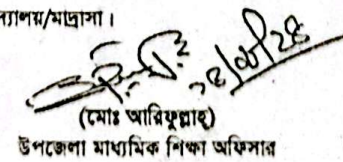 ্যালয়/মাদ্রাসা।
(মোঃ আরিফুল্লাহ)
উপজেলা মাধ্যমিক শিক্ষা অফিসার